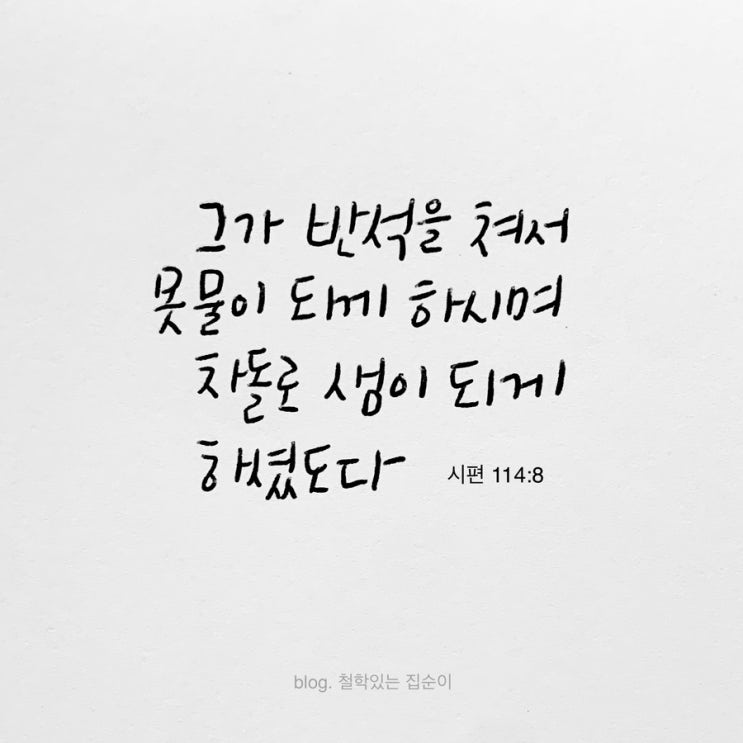 그가 반석을 쳐서
못물이 되게 하시며
차돌로 샘이 되게
하셨도다 시편 114:8
blog. 철학있는 집순이